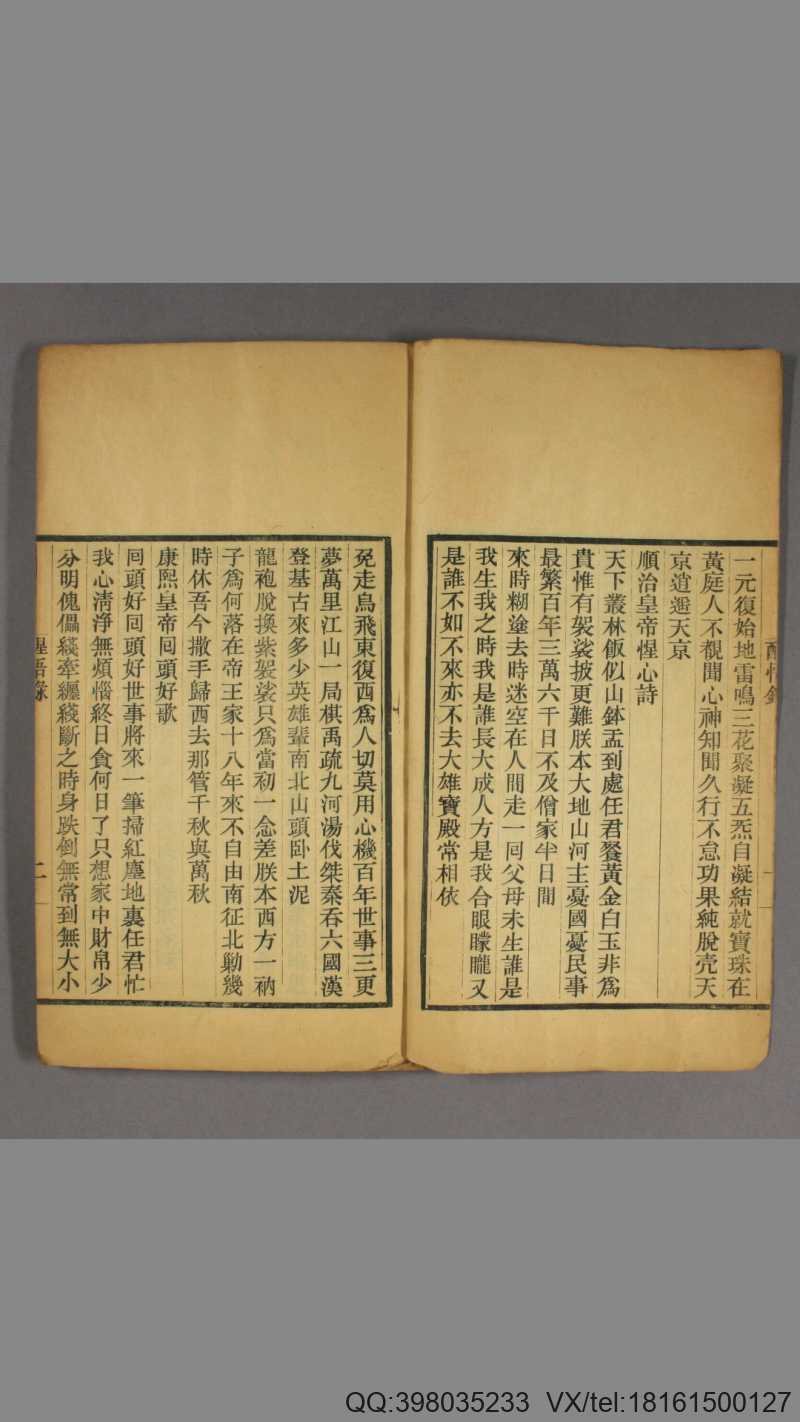 一元復始地雷鳴三花聚凝五炁自凝結就寶珠在
黃庭人不覩聞心神知聞久行不怠功果純脫壳天
京逍遥天京
順治皇帝惺心詩
天下叢林飯似山鉢盂到處任君餐黃金白玉非爲
貴惟有袈裟披更難朕本大地山河主憂國憂民事
最繁百年三萬六千日不及僧家半日閒
來時糊塗去時迷空在人間走一囘父母未生誰是
我生我之時我是誰長大成人方是我合眼矇矓又
是誰不如不來亦不去大雄寶殿常相依
兔走烏飛東復西爲人切莫用心機百年世事三更
夢萬里江山一局棋禹疏九河湯伐桀秦吞六國漢
登基古來多少英雄輩南北山頭卧土泥
龍袍脫換紫袈裟只爲當初一念差朕本西方一衲
子爲何落在帝王家十八年來不自由南征北勦幾
時休吾今撒手歸西去那管千秋與萬秋
康熙皇帝囘頭好歌
囘頭好囘頭好世事將來一筆掃紅塵地裏任君忙
我心淸淨無煩惱終日貪何日了只想家中財帛少
分明傀儡綫牽纏綫斷之時身跌倒無常到無大小
惺悟錄
二
QQ:398035233 VX/tel:18161500127